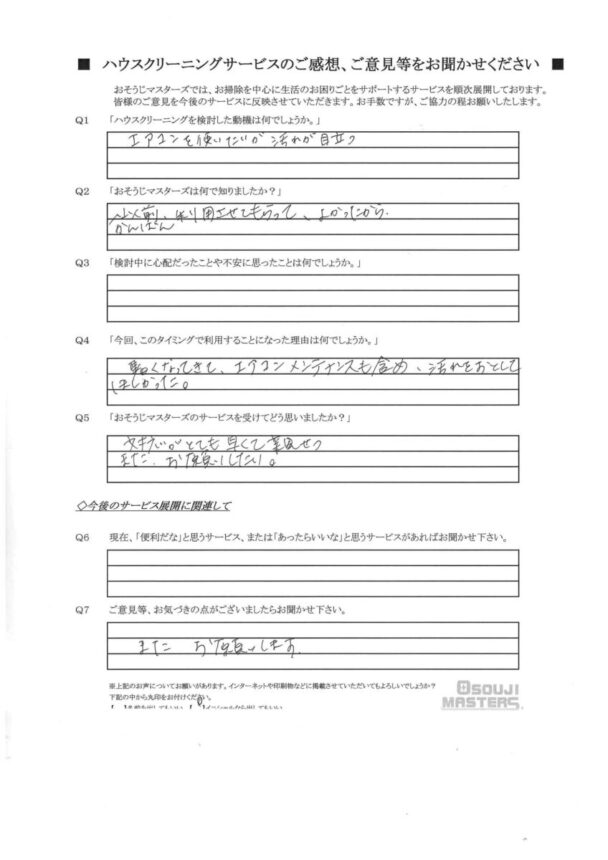 ■ ハウスクリーニングサービスのご感想、ご意見等をお聞かせください ■
おそうじマスターズでは、お掃除を中心に生活のお困りごとをサポートするサービスを順次展開しております。
皆様のご意見を今後のサービスに反映させていただきます。お手数ですが、ご協力の程お願いしたします。
Q1 「ハウスクリーニングを検討した動機は何でしょうか。」
エアコンを使いだいが 汚れが目立つ
Q2 「おそうじマスターズは何で知りましたか?」
以前、利用させてもらって、よかったから.
かんばん
Q3 「検討中に心配だったことや不安に思ったことは何でしょうか。」
Q4 「今回、このタイミングで利用することになった理由は何でしょうか。」
暑くなってきて、エアコンメンテナンスも含め、汚れをおとして
ほしかった。
Q5 「おそうじマスターズのサービスを受けてどう思いましたか?」
がとても早くて
また、お願いしたい。
◇今後のサービス展開に関連して
Q6 現在、「便利だな」と思うサービス、または「あったらいいな」と思うサービスがあればお聞かせ下さい。
Q7 ご意見等、お気づきの点がございましたらお聞かせ下さい。
また お願いします.
※上記のお声についてお願いがあります。インターネットや印刷物などに掲載させていただいてもよろしいでしょうか?
下記の中から丸印をお付けください。
OSOUJI
MASTERS.